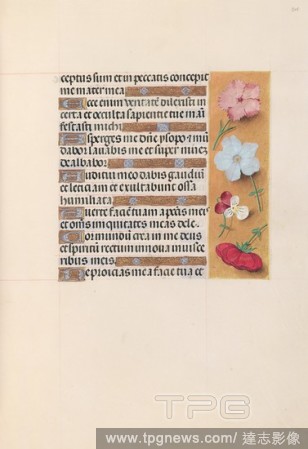 ceptus sum et in peccatis concepit
me mater mea
Ecce enim veritatē dilexisti in
certa et occulta sapientie tue maī
festasti michi
Asperges me dn̄e ysopo et mū
dabor lavabis me et super nivez
dealbabor
Auditui meo dabis gaudiū
et leticiam et exultabunt ossa
humiliata
Averte faciē tuam a pctis meis
et om̄s iniquitates meas dele
Cor mundū crea in me deus
et spiritū rectum innova in visce
ribus meis
Ne proicias me a facie tua et
TPG
www.tpgnews.com/ 達志影像